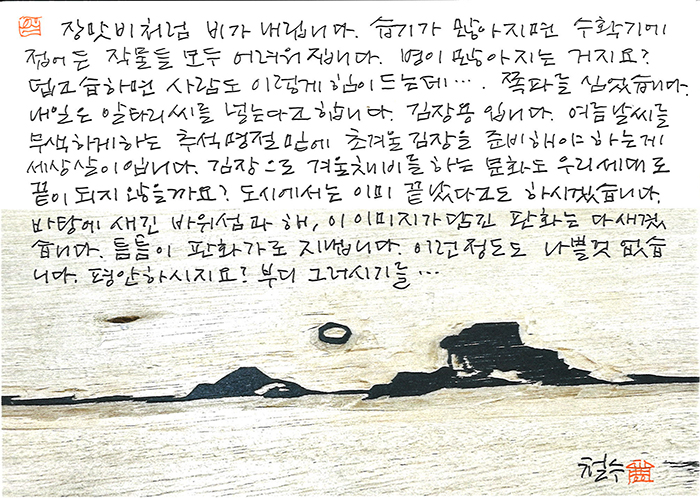 장맛비처럼 비가 내립니다. 습기가 많아지면 수확기에
접어든 작물들 모두 어려워집니다. 병이 많아지는 거지요?
덥고 습하면 사람도 이렇게 힘이 드는데···. 쪽파를 심었습니다.
내일은 알타리씨를 넣는다고 합니다. 김장용입니다. 여름날씨를
무색하게하는 추석명절 밑에 초겨울 김장을 준비해야하는게
세상살이입니다. 김장으로 겨울채비를 하는 문화도 우리세대로
끝이 되지 않을까요? 도시에서는 이미 끝났다고도 하시겠습니다.
바탕에 새긴 바위섬과 해, 이 이미지가 담긴 판화는 다새겼
습니다. 틈틈이 판화가로 지냅니다. 이런정도도 나쁠것 없습
니다. 평안하시지요? 부디 그러시기를 ···
철수